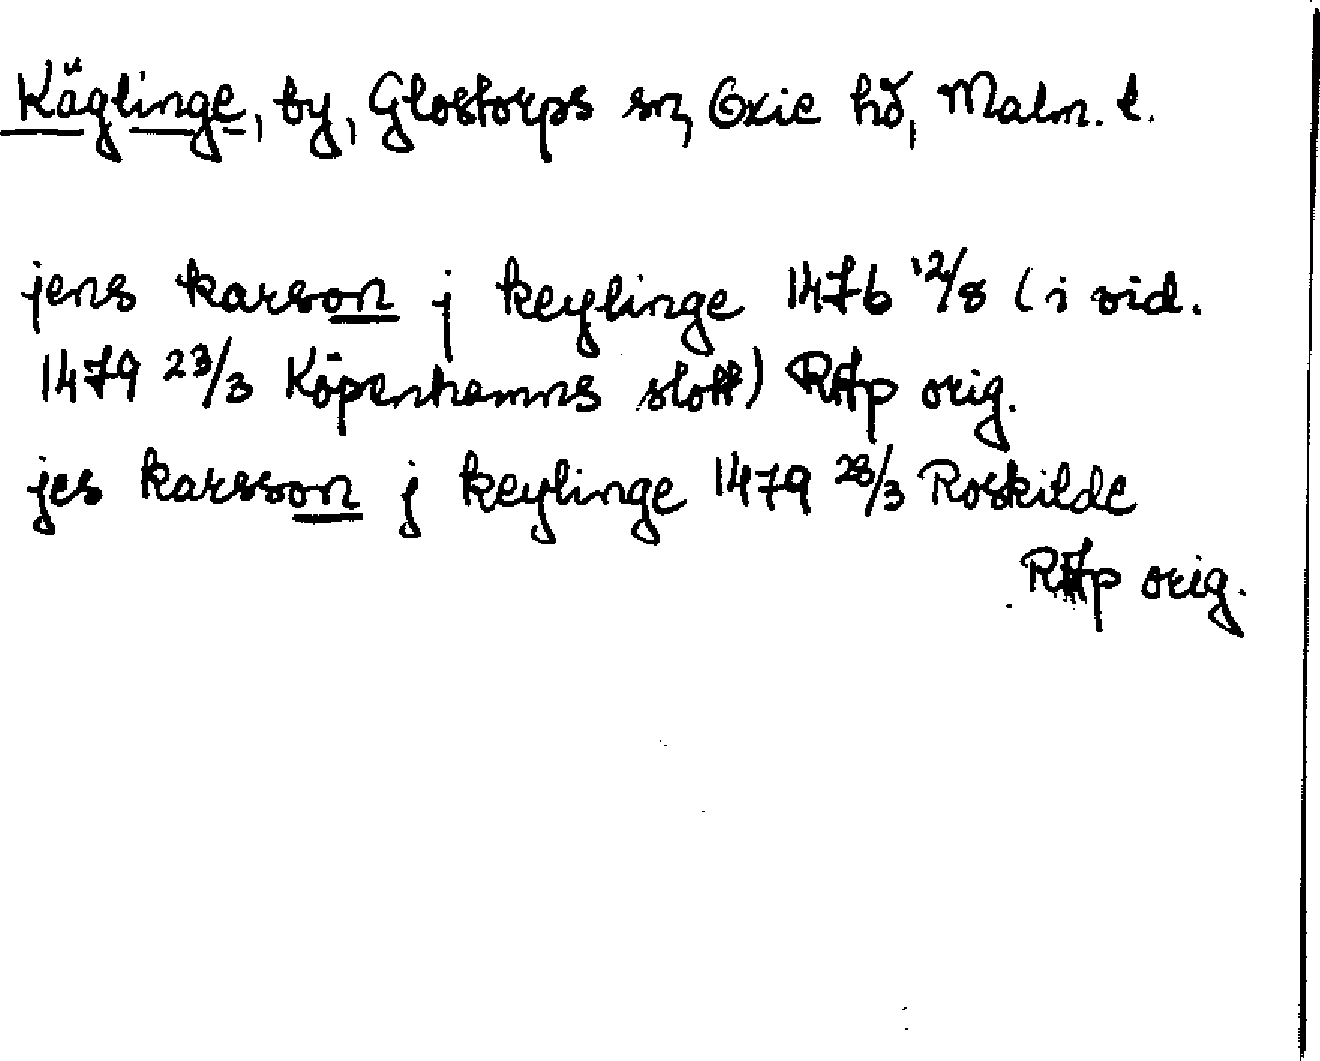 Käglinge, by, Glostorps sn, Oxie hd, Malm. l.
jens karson j keylinge 1476 12/8 (i vid.
1479 23/3 Köpenhamns slott) RAp orig.
jes karsson j keylinge 1479 28/3 Roskilde
RAp orig.